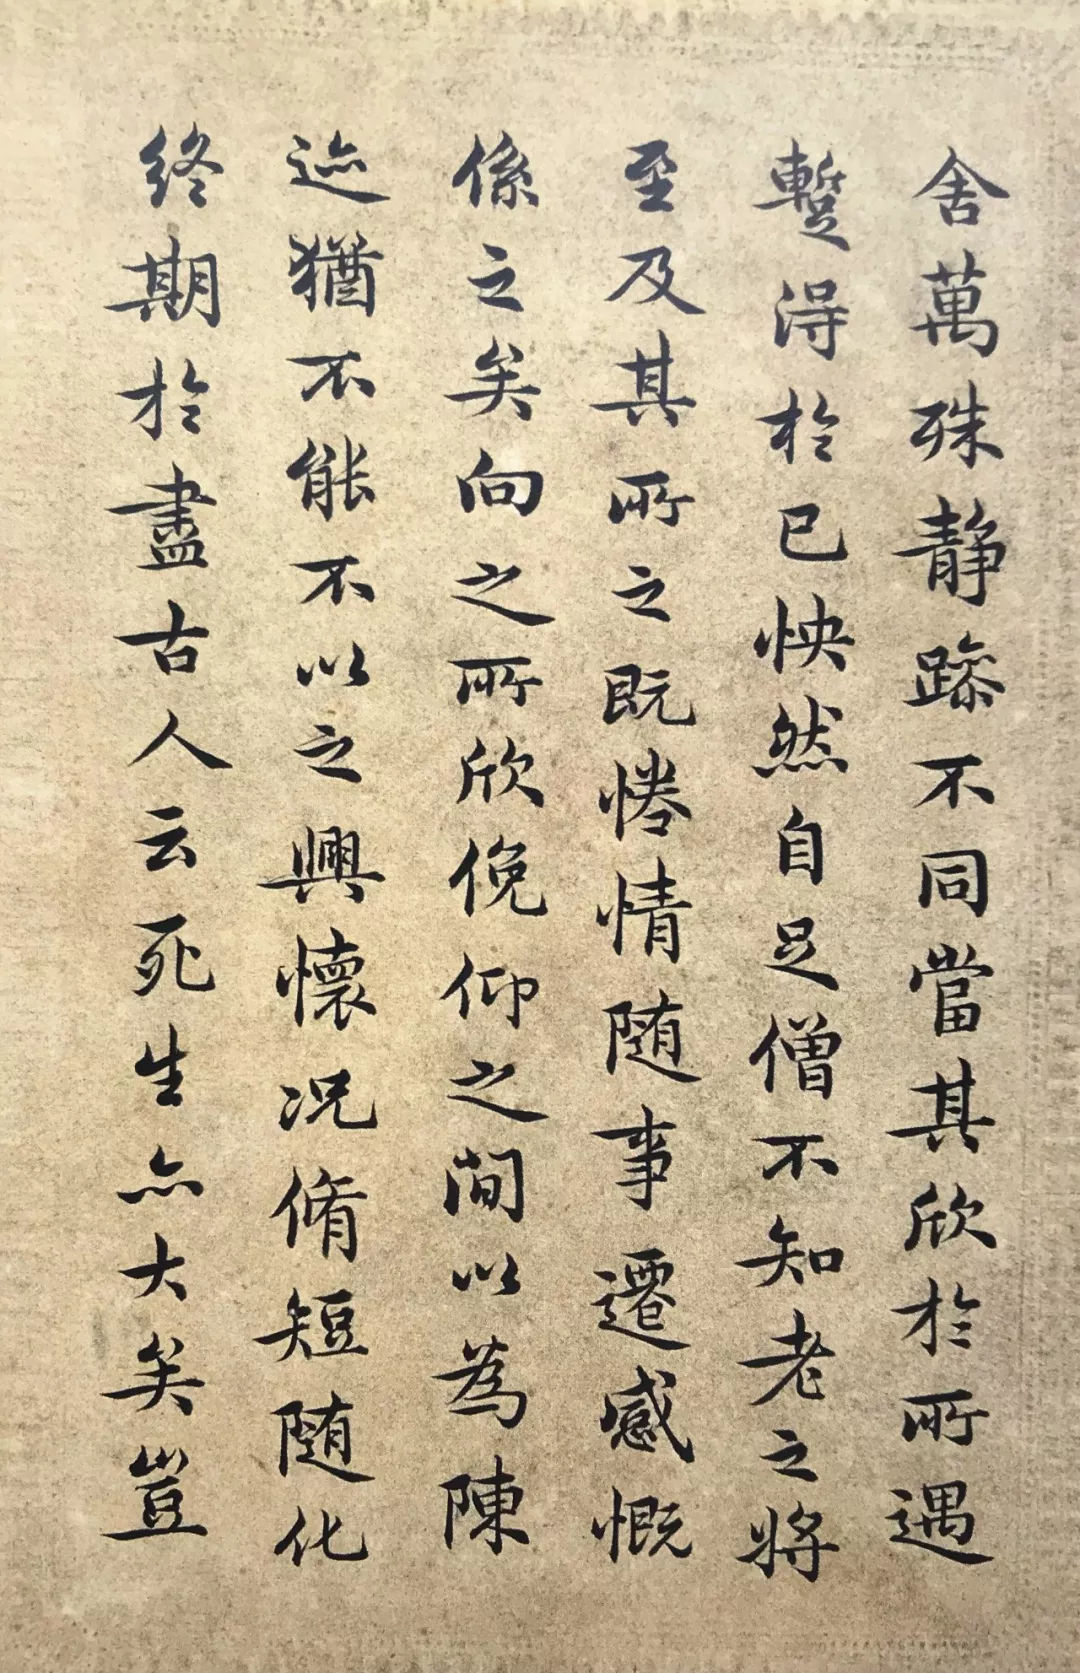 舍萬殊静躁不同當其欣於所遇
暫得於己怏然自足僧不知老之將
至及其所之既惓情随事遷感慨
係之矣向之所欣俛仰之閒以為陳
迹猶不能不以之興懷况脩短随化
終期於盡古人云死生亦大矣豈